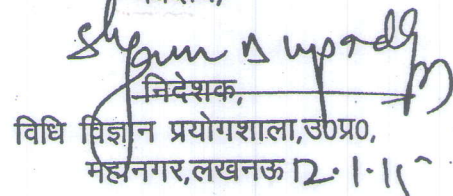 निदेशक,
विधि विज्ञान प्रयोगशाला,उ0प्र0,
महानगर,लखनऊ 12.1.15